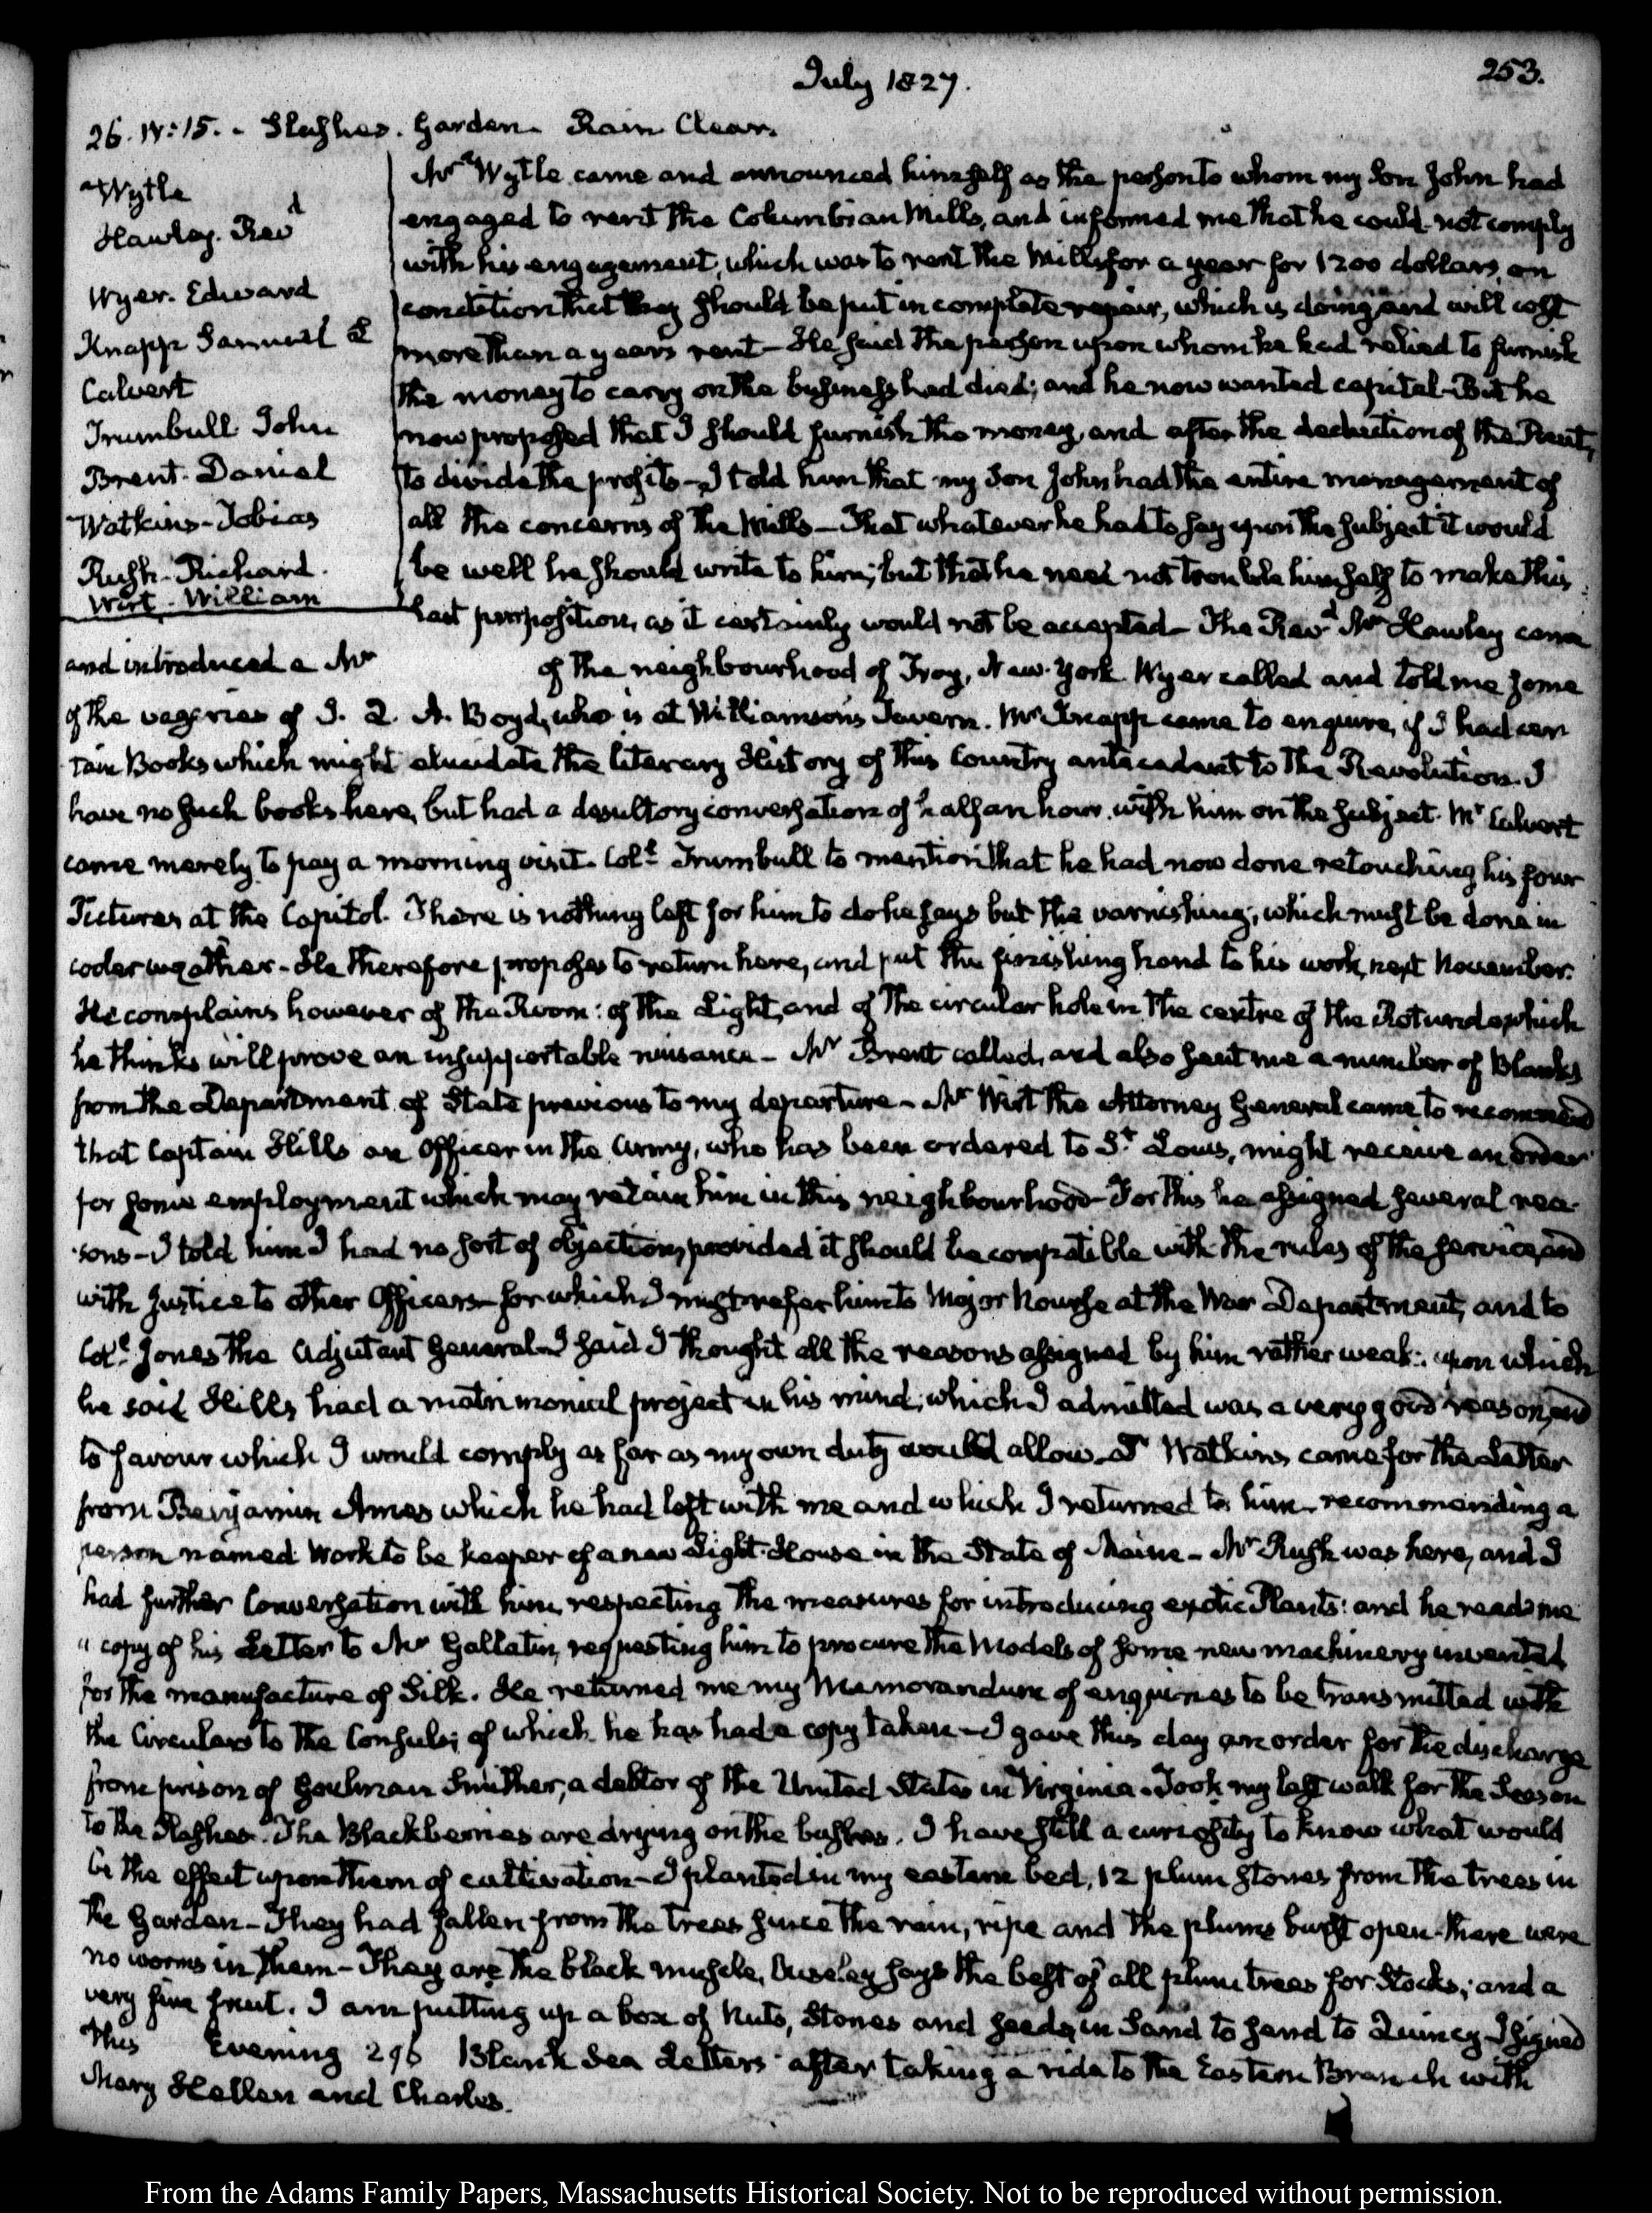 July 1827.
253.
26. IV:15. - Slashes. Garden. Rain. Clear.
Wytle
Hawley. Revd
Wyer. Edward
Knapp Samuel L
Calvert
Trumbull John
Brent. Daniel
Watkins - Tobias
Rush - Richard.
Wirt - William
Mr Wytle came and announced himself as the person to whom my Son John had
engaged to rent the Columbian Mills, and informed me that he could not comply
with his engagement, which was to rent the Mills for a year for 1200 dollars, on
condition that they should be put in complete repair, which is doing and will cost
more than a years rent - He said the person upon whom he had relied to furnish
the money to carry on the business had died; and he now wanted capital - But he
now proposed that I should furnish the money, and after the deduction of the Rent,
to divide the profits - I told him that my Son John had the entire management of
all the concerns of the Mills - That whatever he had to say upon the subject it would
be well he should write to him; but that he need not trouble himself to make this
last proposition, as it certainly would not be accepted - The Revd Mr Hawley came
and introduced a Mr of the neighbourhood of Troy, New-York. Wyer called and told me some
of the vagaries of J. Q. A. Boyd, who is at Williamson's Tavern. Mr Knapp came to enquire, if I had cer
tain Books which might elucidate the literary History of this Country antecedent to the Revolution. I
have no such books here, but had a desultory conversation of half an hour with him on the subject. Mr Calvert
came merely to pay a morning visit. Coll Trumbull to mention that he had now done retouching his four
Pictures at the Capitol. There is nothing left for him to do he says but the varnishing; which must be done in
cooler weather - He therefore proposes to return here, and put the finishing hand to his work, next November.
He complains however of the Room: of the Light, and of the circular hole in the centre of the Rotunda, which
he thinks will prove an insupportable nuisance - Mr Brent called, and also sent me a number of Blanks
from the Department of State previous to my departure - Mr Wirt the Attorney General came to recommend
that Captain Hills an Officer in the Army, who has been ordered to St Louis, might receive an order
for some employment which may retain him in this neighbourhood - For this he assigned several rea-
sons - I told him I had no sort of objection, provided it should be compatible with the rules of the service, and
with justice to other Officers - for which I must refer him to Major Nourse at the War Department, and to
Coll Jones the Adjutant General - I said I thought all the reasons assigned by him rather weak: upon which
he said Hills had a matrimonial project in his mind; which I admitted was a very good reason, and
to favour which I would comply as far as my own duty would allow. Dr Watkins came for the Letter
from Benjamin Ames which he had left with me and which I returned to him - recommending a
person named Work to be keeper of a new Light-House in the State of Maine - Mr Rush was here, and I
had further Conversation with him, respecting the measures for introducing exotic Plants: and he read me
a copy of his Letter to Mr Gallatin, requesting him to procure the Models of some new machinery invented
for the manufacture of Silk. He returned me my Memorandum of enquiries to be transmitted with
the Circulars to the Consuls; of which he has had a copy taken - I gave this day an order for the discharge
from prison of Smither, a debtor of the United States in Virginia. Took my last walk for the Season
to the Slashes. The Blackberries are drying on the bushes. I have still a curiosity to know what would
be the effect upon them of cultivation - I planted in my eastern bed, 12 plum stones from the trees in
the Garden - They had fallen from the trees since the rain, ripe and the plums burst open - there were
no worms in them - They are the black muscle, Ousley says the best of all plum trees for Stocks; and a
very fine fruit. I am putting up a box of Nuts, Stones and seeds, in Sand to send to Quincy. I signed
this Evening 296 Blank Sea Letters after taking a ride to the Eastern Branch with
Mary Hellen and Charles.
From the Adams Family Papers, Massachusetts Historical Society. Not to be reproduced without permission.